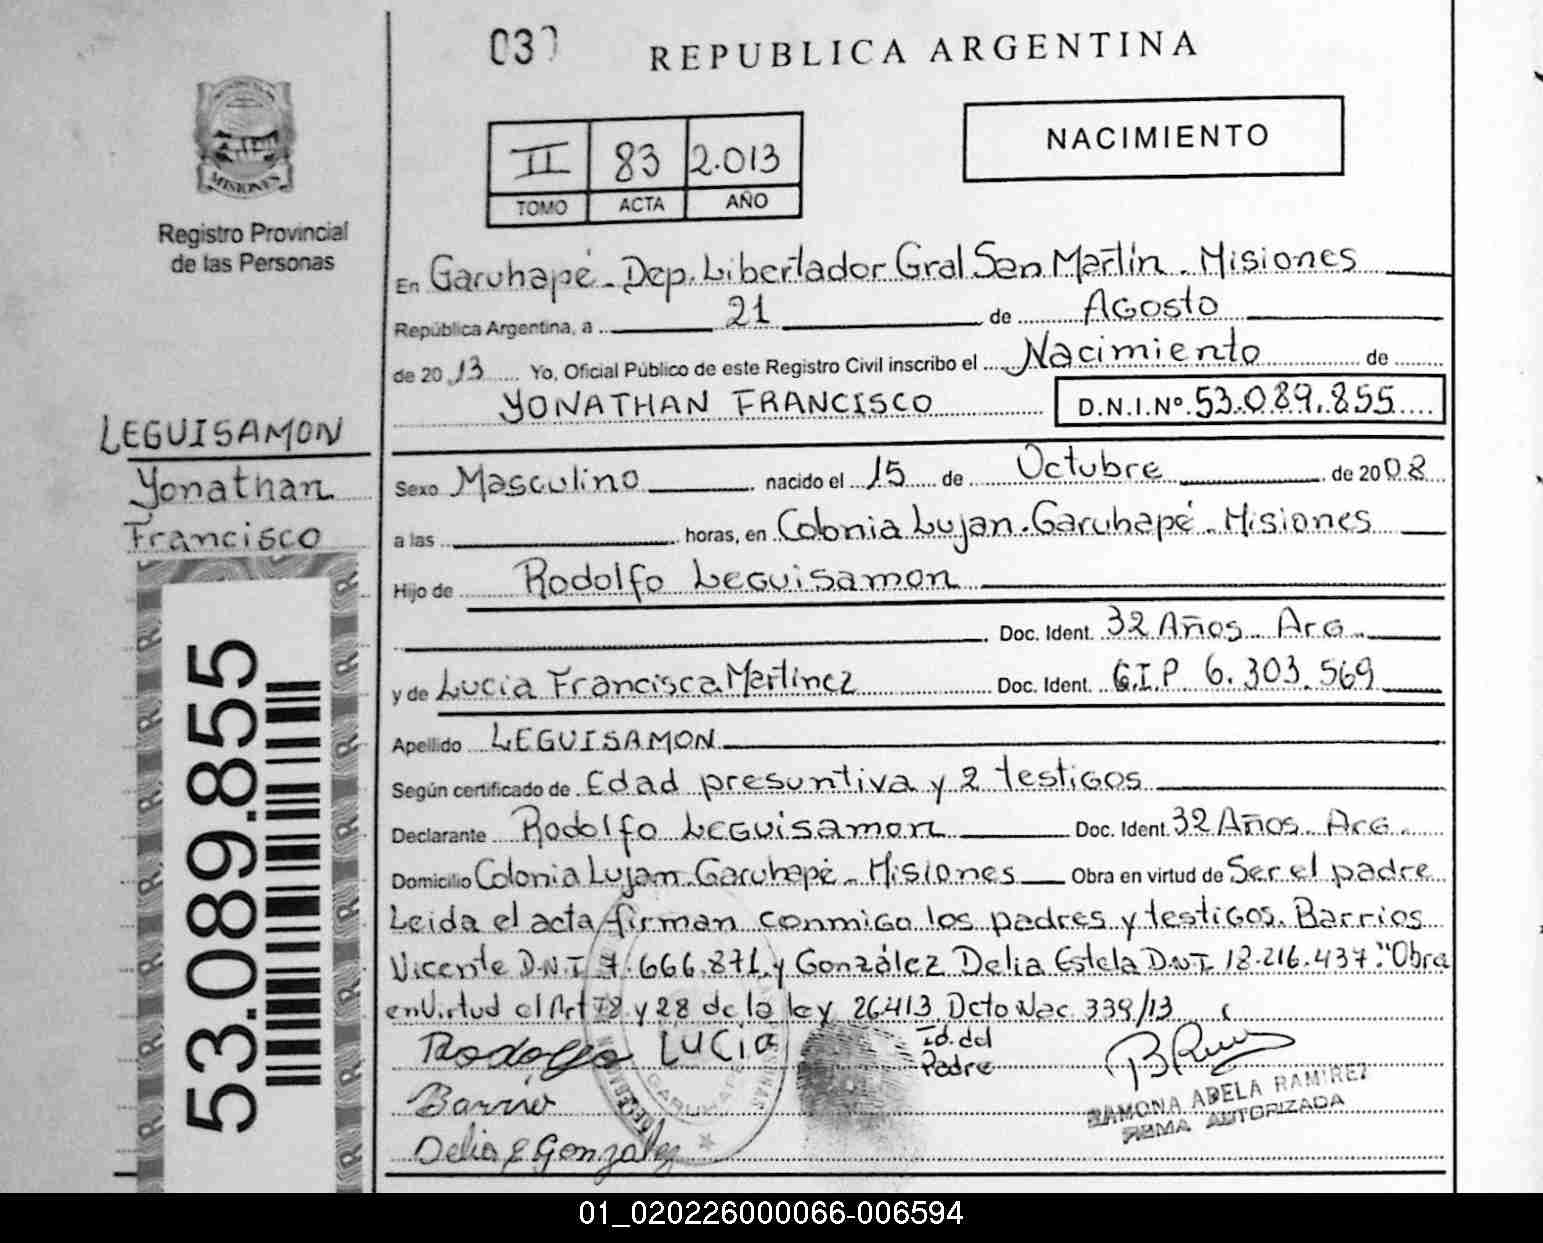 03
REPUBLICA ARGENTINA
II 83 2.013
TOMO ACTA AÑO
NACIMIENTO
MISIONES
Registro Provincial
de las Personas
En Garuhapé - Dep. Libertador Gral San Martín - Misiones
República Argentina, a 21 de Agosto
de 2013 Yo, Oficial Público de este Registro Civil inscribo el Nacimiento de
YONATHAN FRANCISCO D.N.I.Nº 53.089.855
LEGUISAMON
Yonathan
Francisco
Sexo Masculino nacido el 15 de Octubre de 2008
a las horas, en Colonia Lujan - Garuhapé - Misiones
Hijo de Rodolfo Leguisamon
Doc. Ident. 32 Años Arg.
y de Lucia Francisca Martinez Doc. Ident. C.I.P 6.303.569
Apellido LEGUISAMON
Según certificado de Edad presuntiva y 2 testigos
Declarante Rodolfo Leguisamon Doc. Ident. 32 Años Arg.
Domicilio Colonia Lujan - Garuhapé - Misiones Obra en virtud de Ser el padre
Leida el acta, firman conmigo los padres y testigos. Barrios
Vicente D.N.I 7.666.871 y González Delia Estela D.N.I. 18.216.437. "Obra
en Virtud el Art 78 y 28 de la ley 26413 Dcto Nac. 339/13
Rodolfo LUCIA Id. del
Padre
Barrio
Delia E Gonzalez
GARUHAPE
RAMONA ADELA RAMIREZ
FIRMA AUTORIZADA
53.089.855
01_020226000066-006594